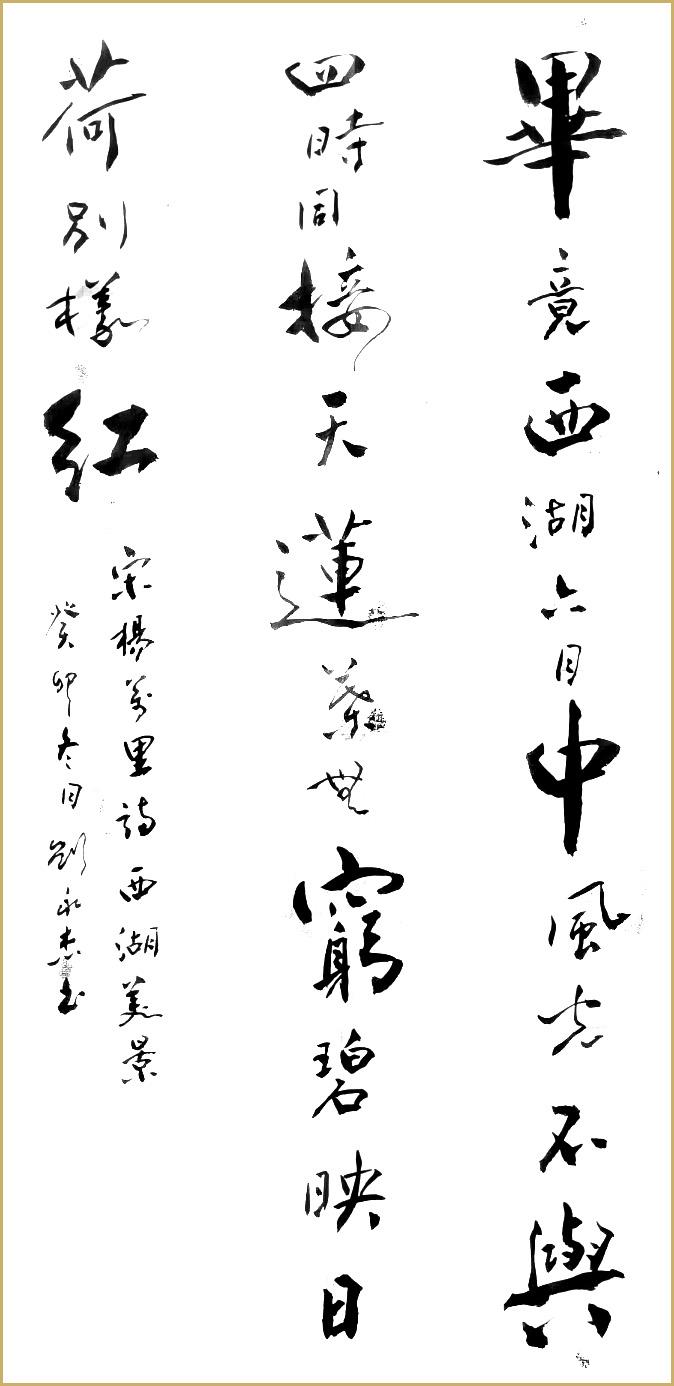 畢竟西湖六月中風光不與
四時同接天蓮葉無窮碧映日
荷別樣紅
宋楊萬里詩西湖美景
癸卯冬月劉永杰書